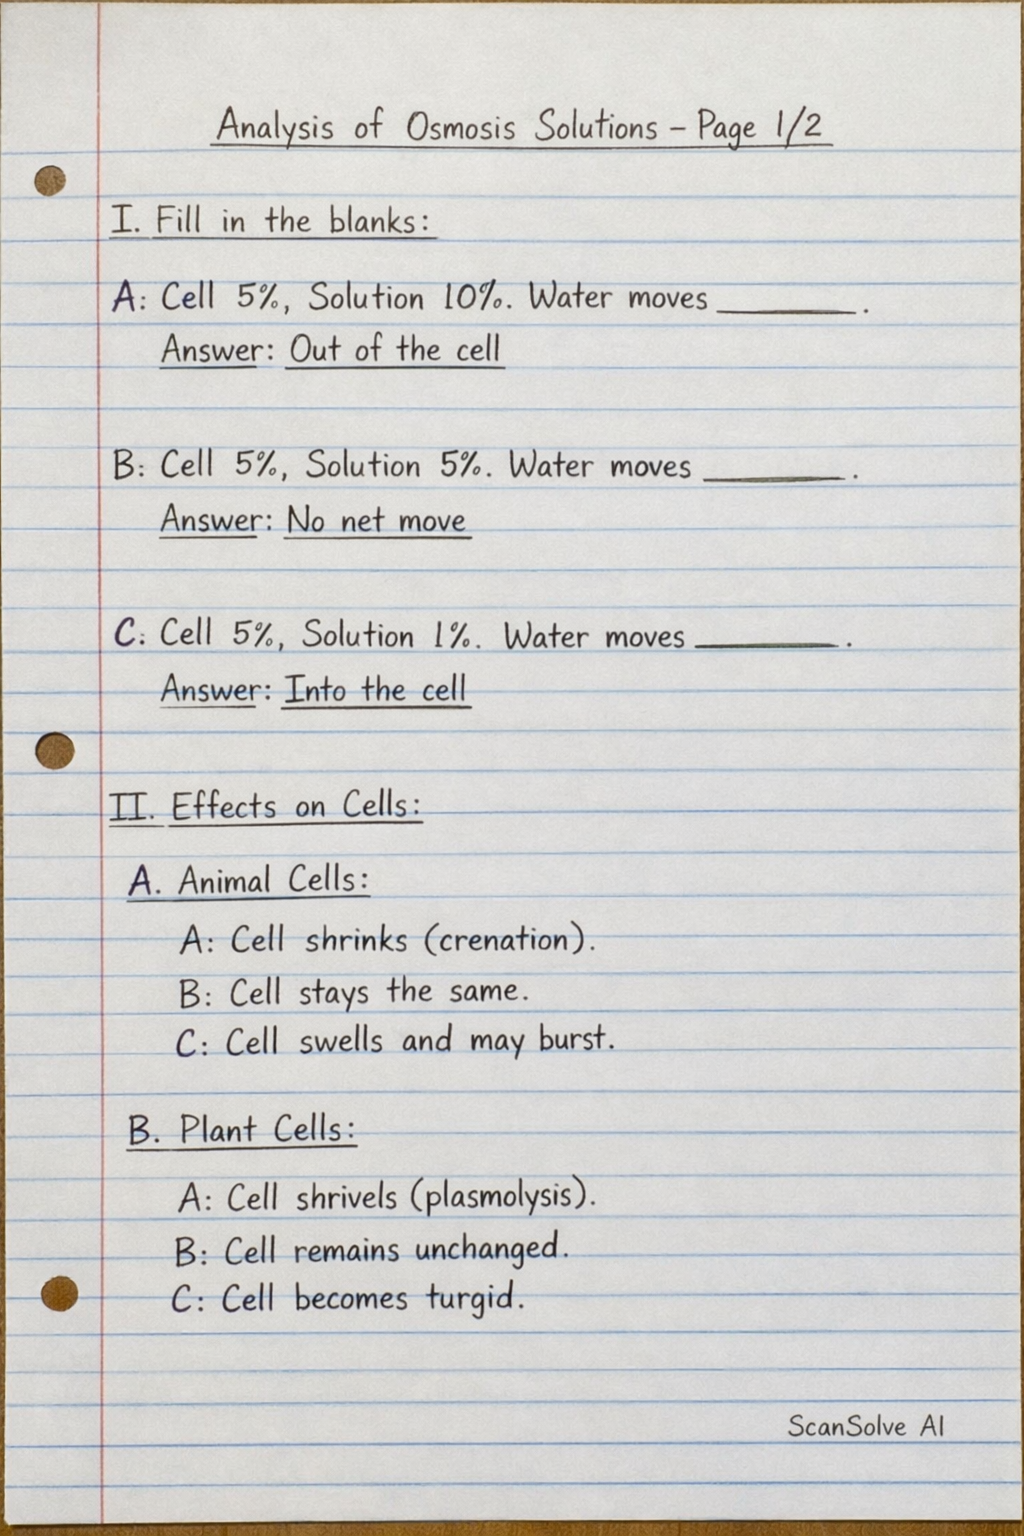 Analysis of Osmosis Solutions – Page 1/2
I. Fill in the blanks:
A: Cell 5%, Solution 10%. Water moves ________.
Answer: Out of the cell
B: Cell 5%, Solution 5%. Water moves ________.
Answer: No net move
C: Cell 5%, Solution 1%. Water moves ________.
Answer: Into the cell
II. Effects on Cells:
A. Animal Cells:
A: Cell shrinks (crenation).
B: Cell stays the same.
C: Cell swells and may burst.
B. Plant Cells:
A: Cell shrivels (plasmolysis).
B: Cell remains unchanged.
C: Cell becomes turgid.
ScanSolve AI